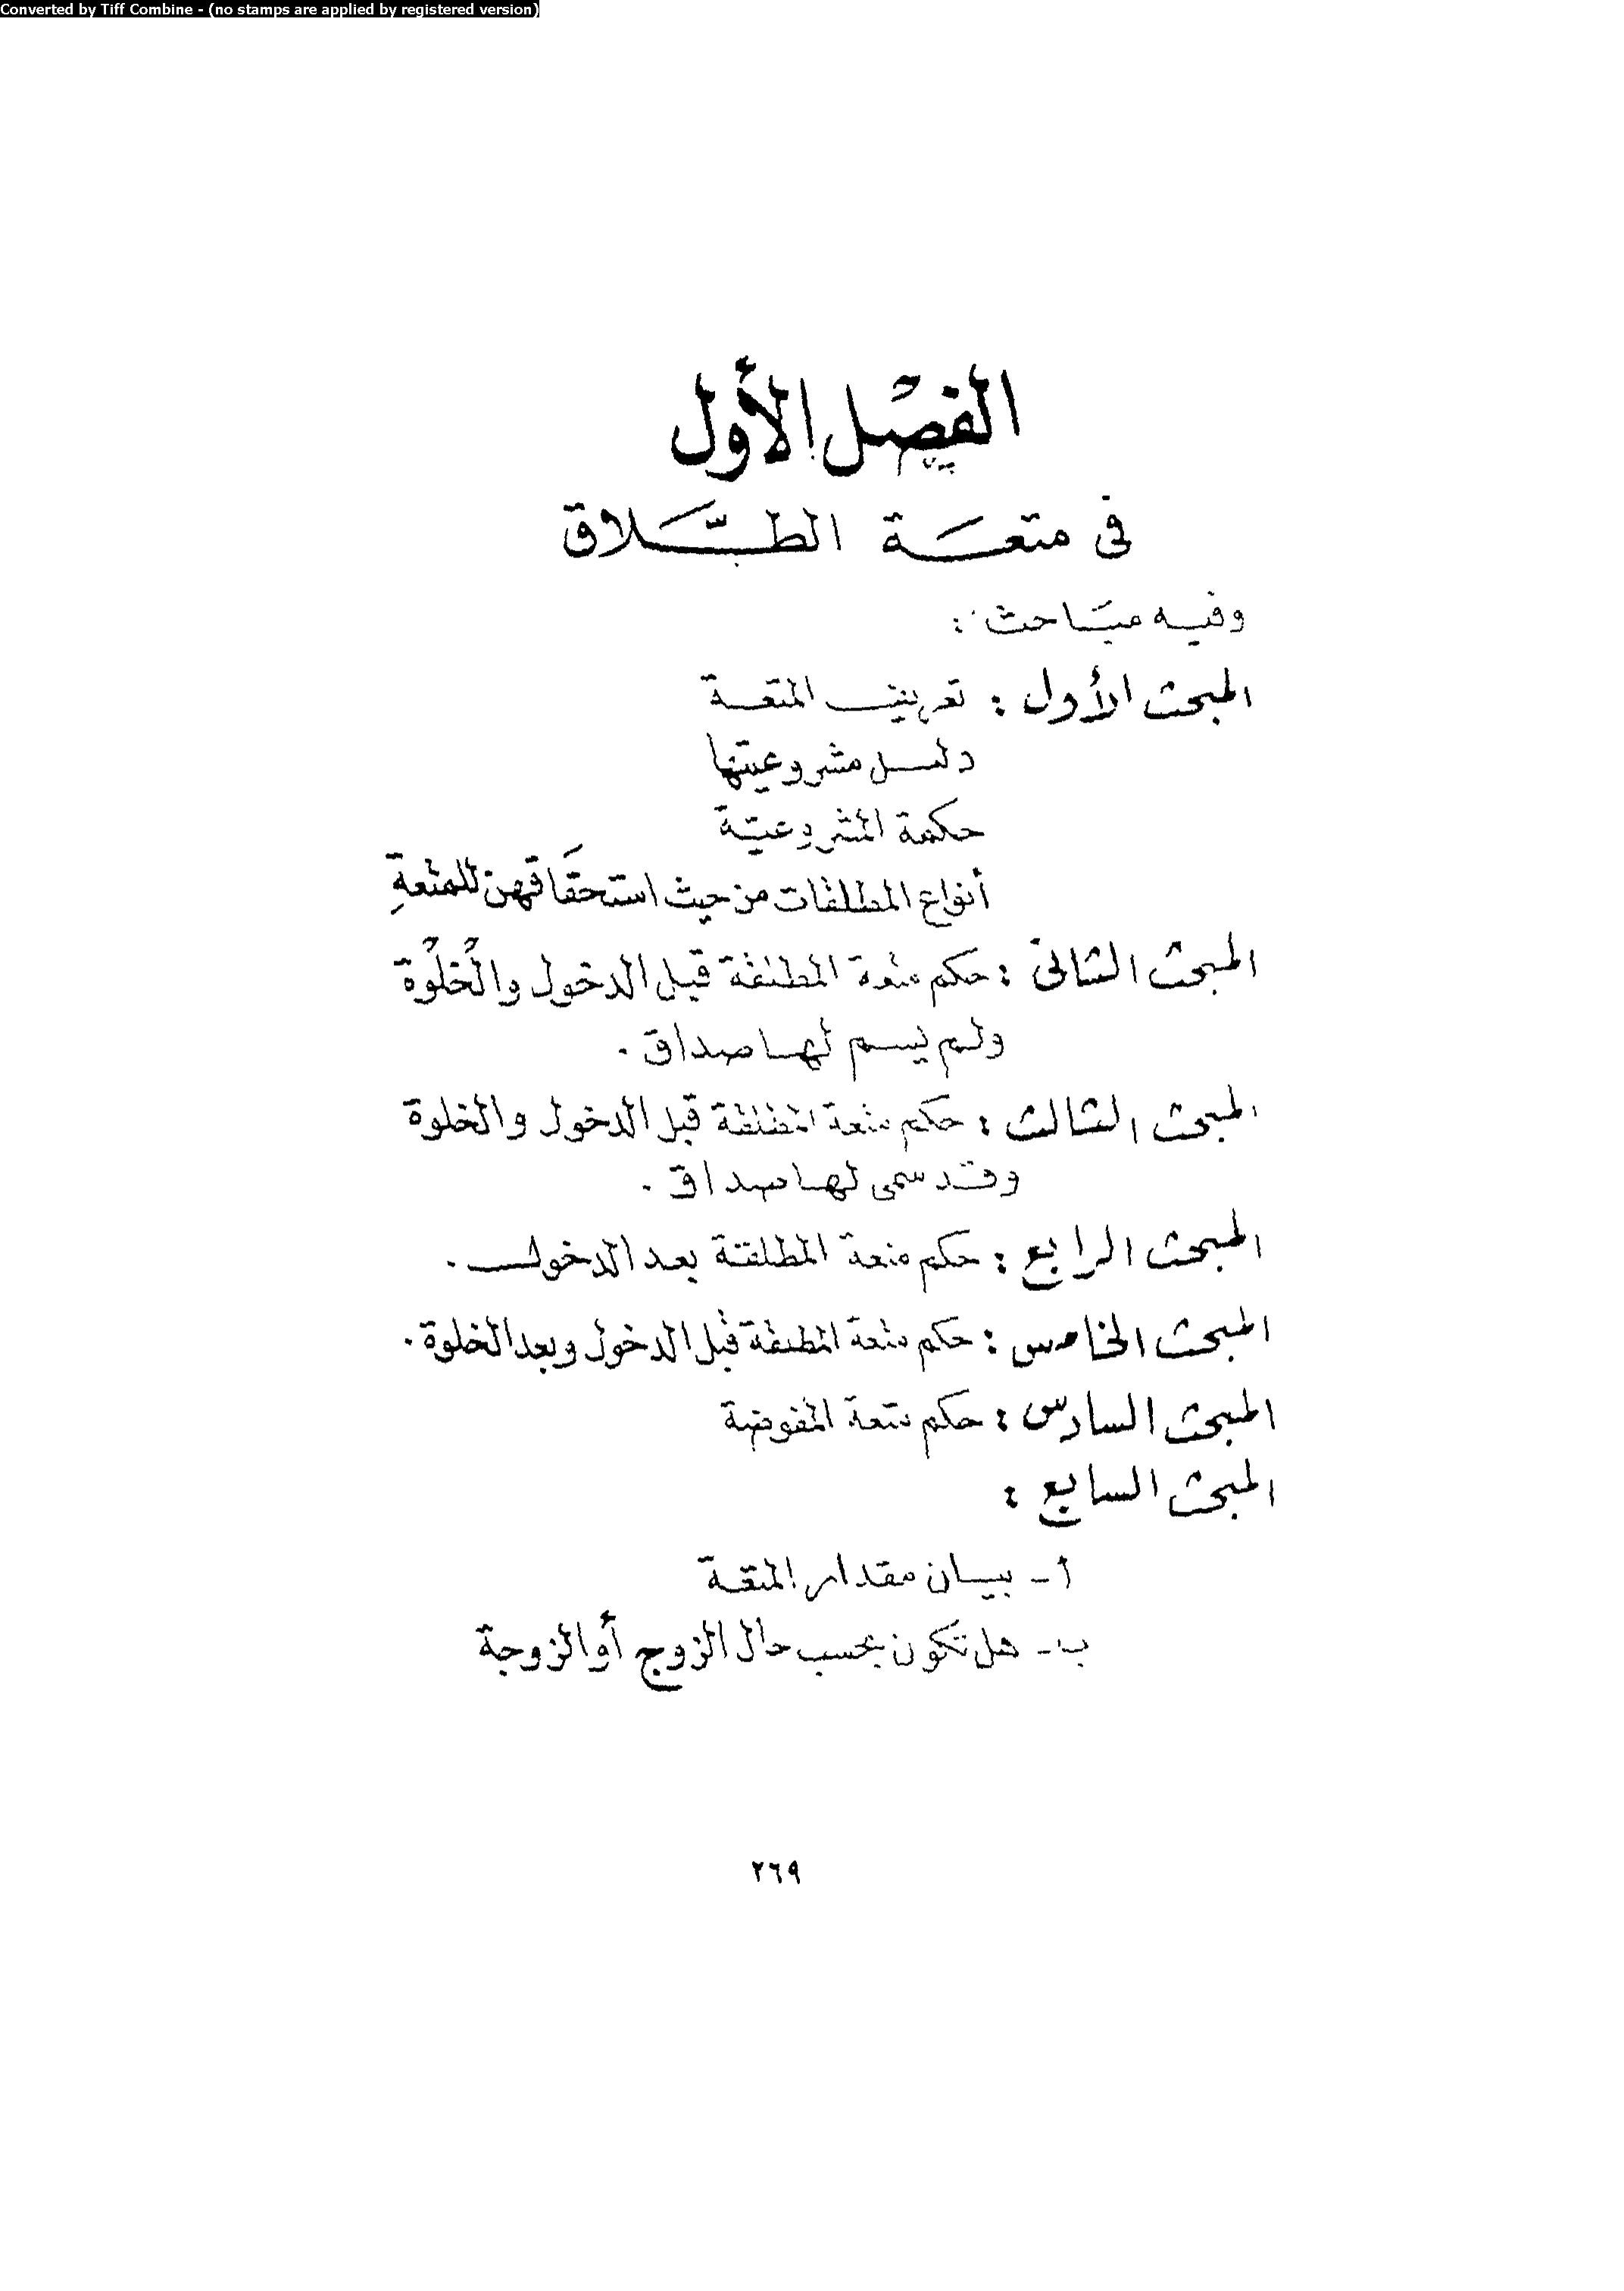 Converted by Tiff Combine - (no stamps are applied by registered version)
الفصل الأول
فى متعة الطلاق
وفيه مباحث :
المبحث الأول : تعريف المتعة
دليل مشروعيتها
حكمة المشروعية
أنواع المطلقات من حيث استحقاقهن للمتعة
المبحث الثانى : حكم متعة المطلقة قبل الدخول والخلوة
ولم يسم لها صداق .
المبحث الثالث : حكم متعة المطلقة قبل الدخول والخلوة
وقد سمى لها صداق .
المبحث الرابع : حكم متعة المطلقة بعد الدخول .
المبحث الخامس : حكم متعة المطلقة قبل الدخول وبعد الخلوة .
المبحث السادس : حكم متعة المفوضة
المبحث السابع :
أ - بيان مقدار المتعة
ب - هل تكون بحسب حال الزوج أو الزوجة
٢٦٩